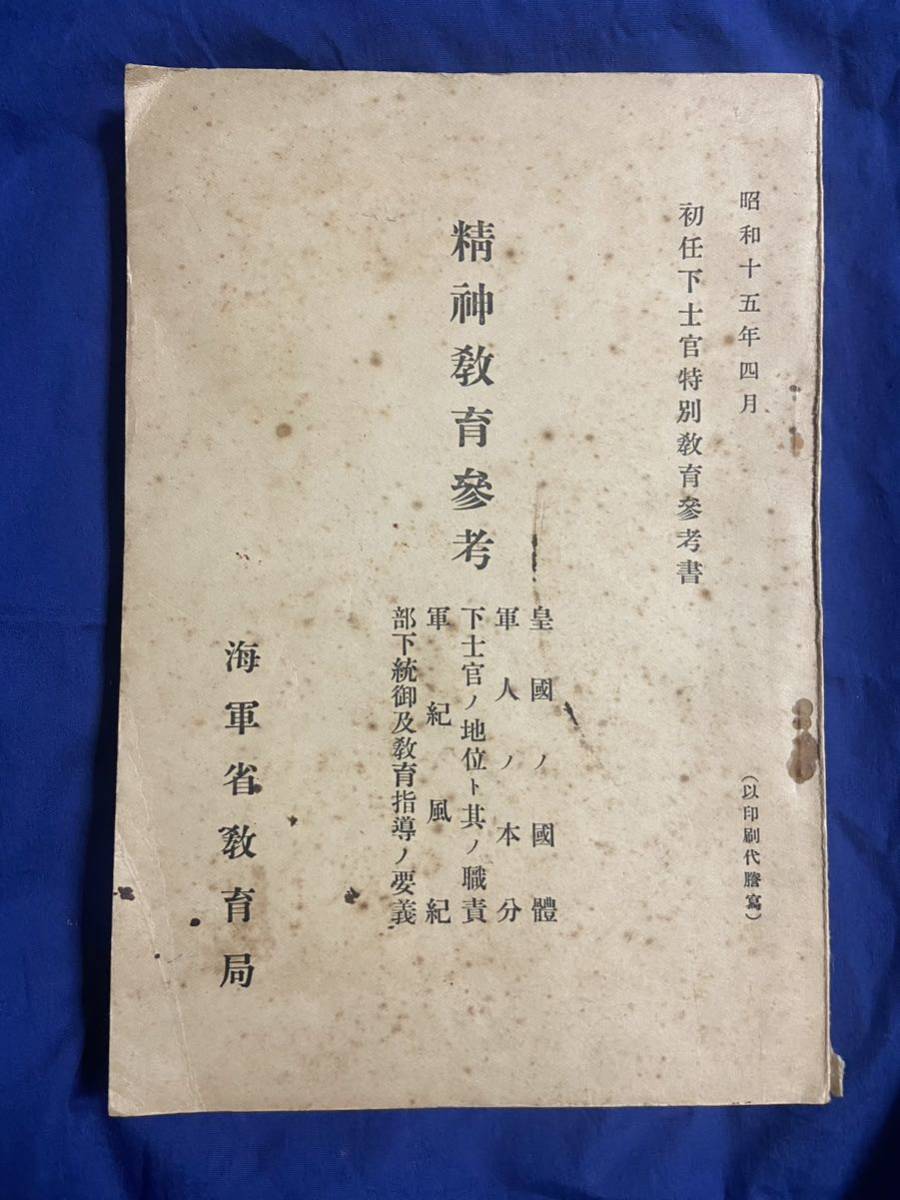 昭和十五年四月
（以印刷代謄寫）
初任下士官特別敎育參考書
精神敎育參考
皇國ノ國體
軍人ノ本分
下士官ノ地位ト其ノ職責
軍紀風紀
部下統御及敎育指導ノ要義
海軍省敎育局